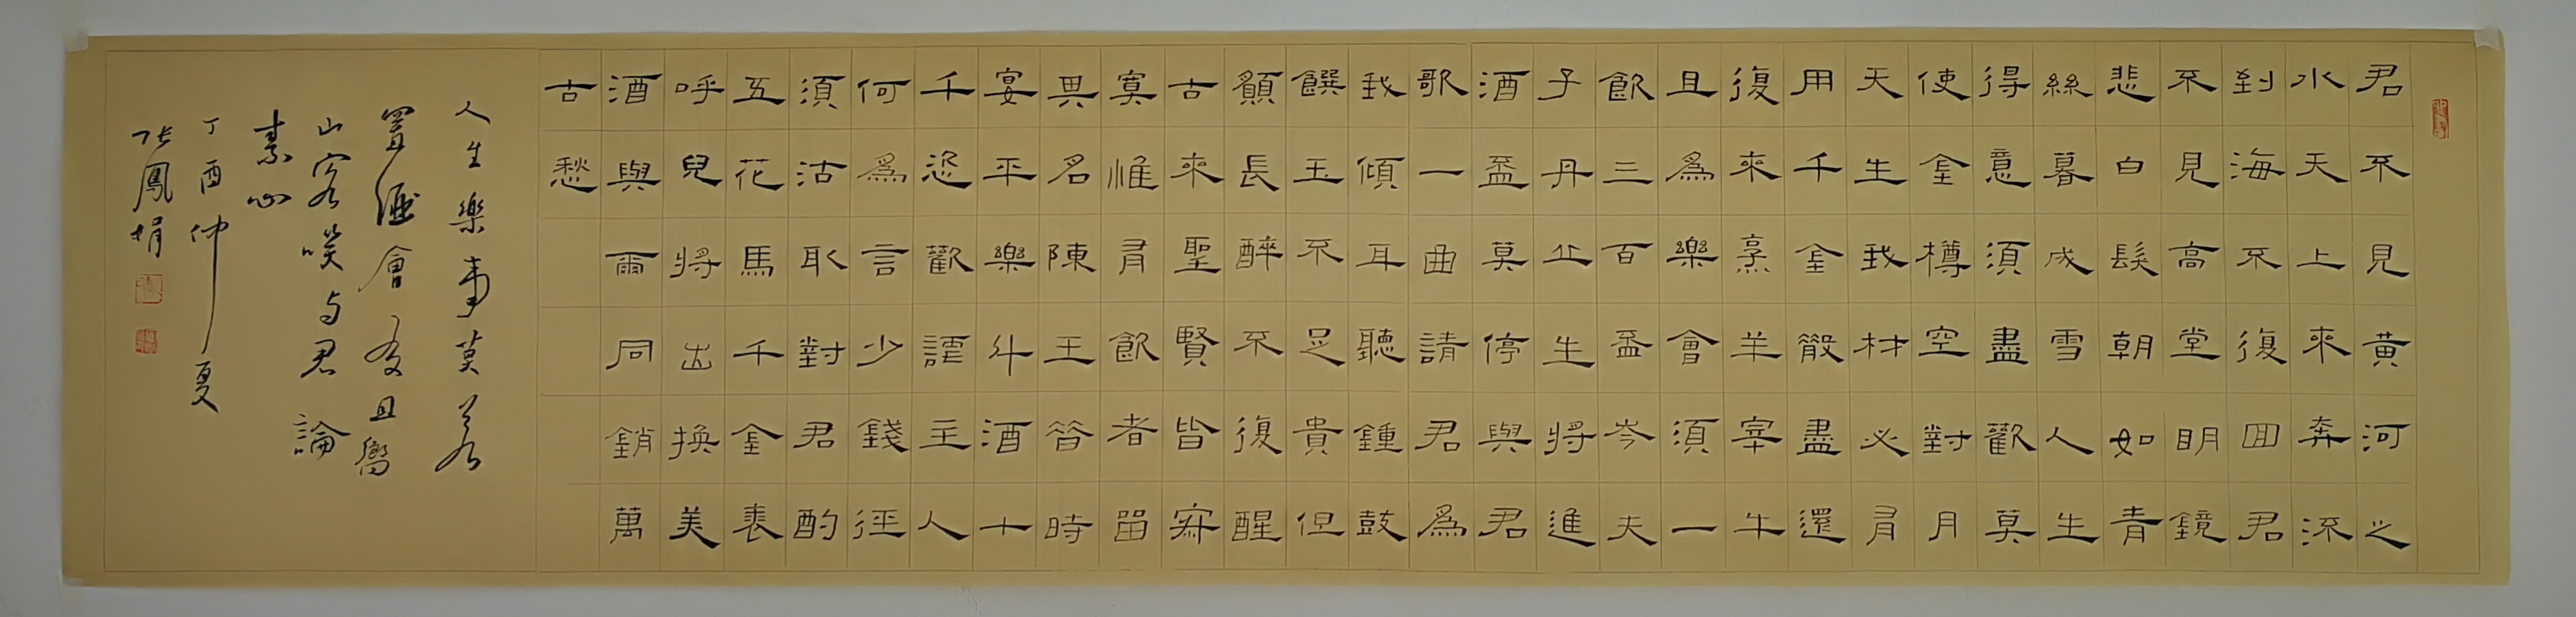 君不見黃河之
水天上來奔流
到海不復囬君
不見高堂明鏡
悲白髮朝如青
絲暮成雪人生
得意須盡歡莫
使金樽空對月
天生我材必有
用千金散盡還
復來烹羊宰牛
且為樂會須一
飲三百盃岑夫
子丹丘生將進
酒盃莫停與君
歌一曲請君為
我傾耳聽鍾鼓
饌玉不足貴但
願長醉不復醒
古來聖賢皆寂
寞惟有飲者留
其名陳王昔時
宴平樂斗酒十
千恣歡謔主人
何為言少錢徑
須沽取對君酌
五花馬千金裘
呼兒將出換美
酒與爾同銷萬
古愁
人生樂事莫若
置酒會友且嚮
山客 与君論
素心
丁酉仲夏
張鳳娟